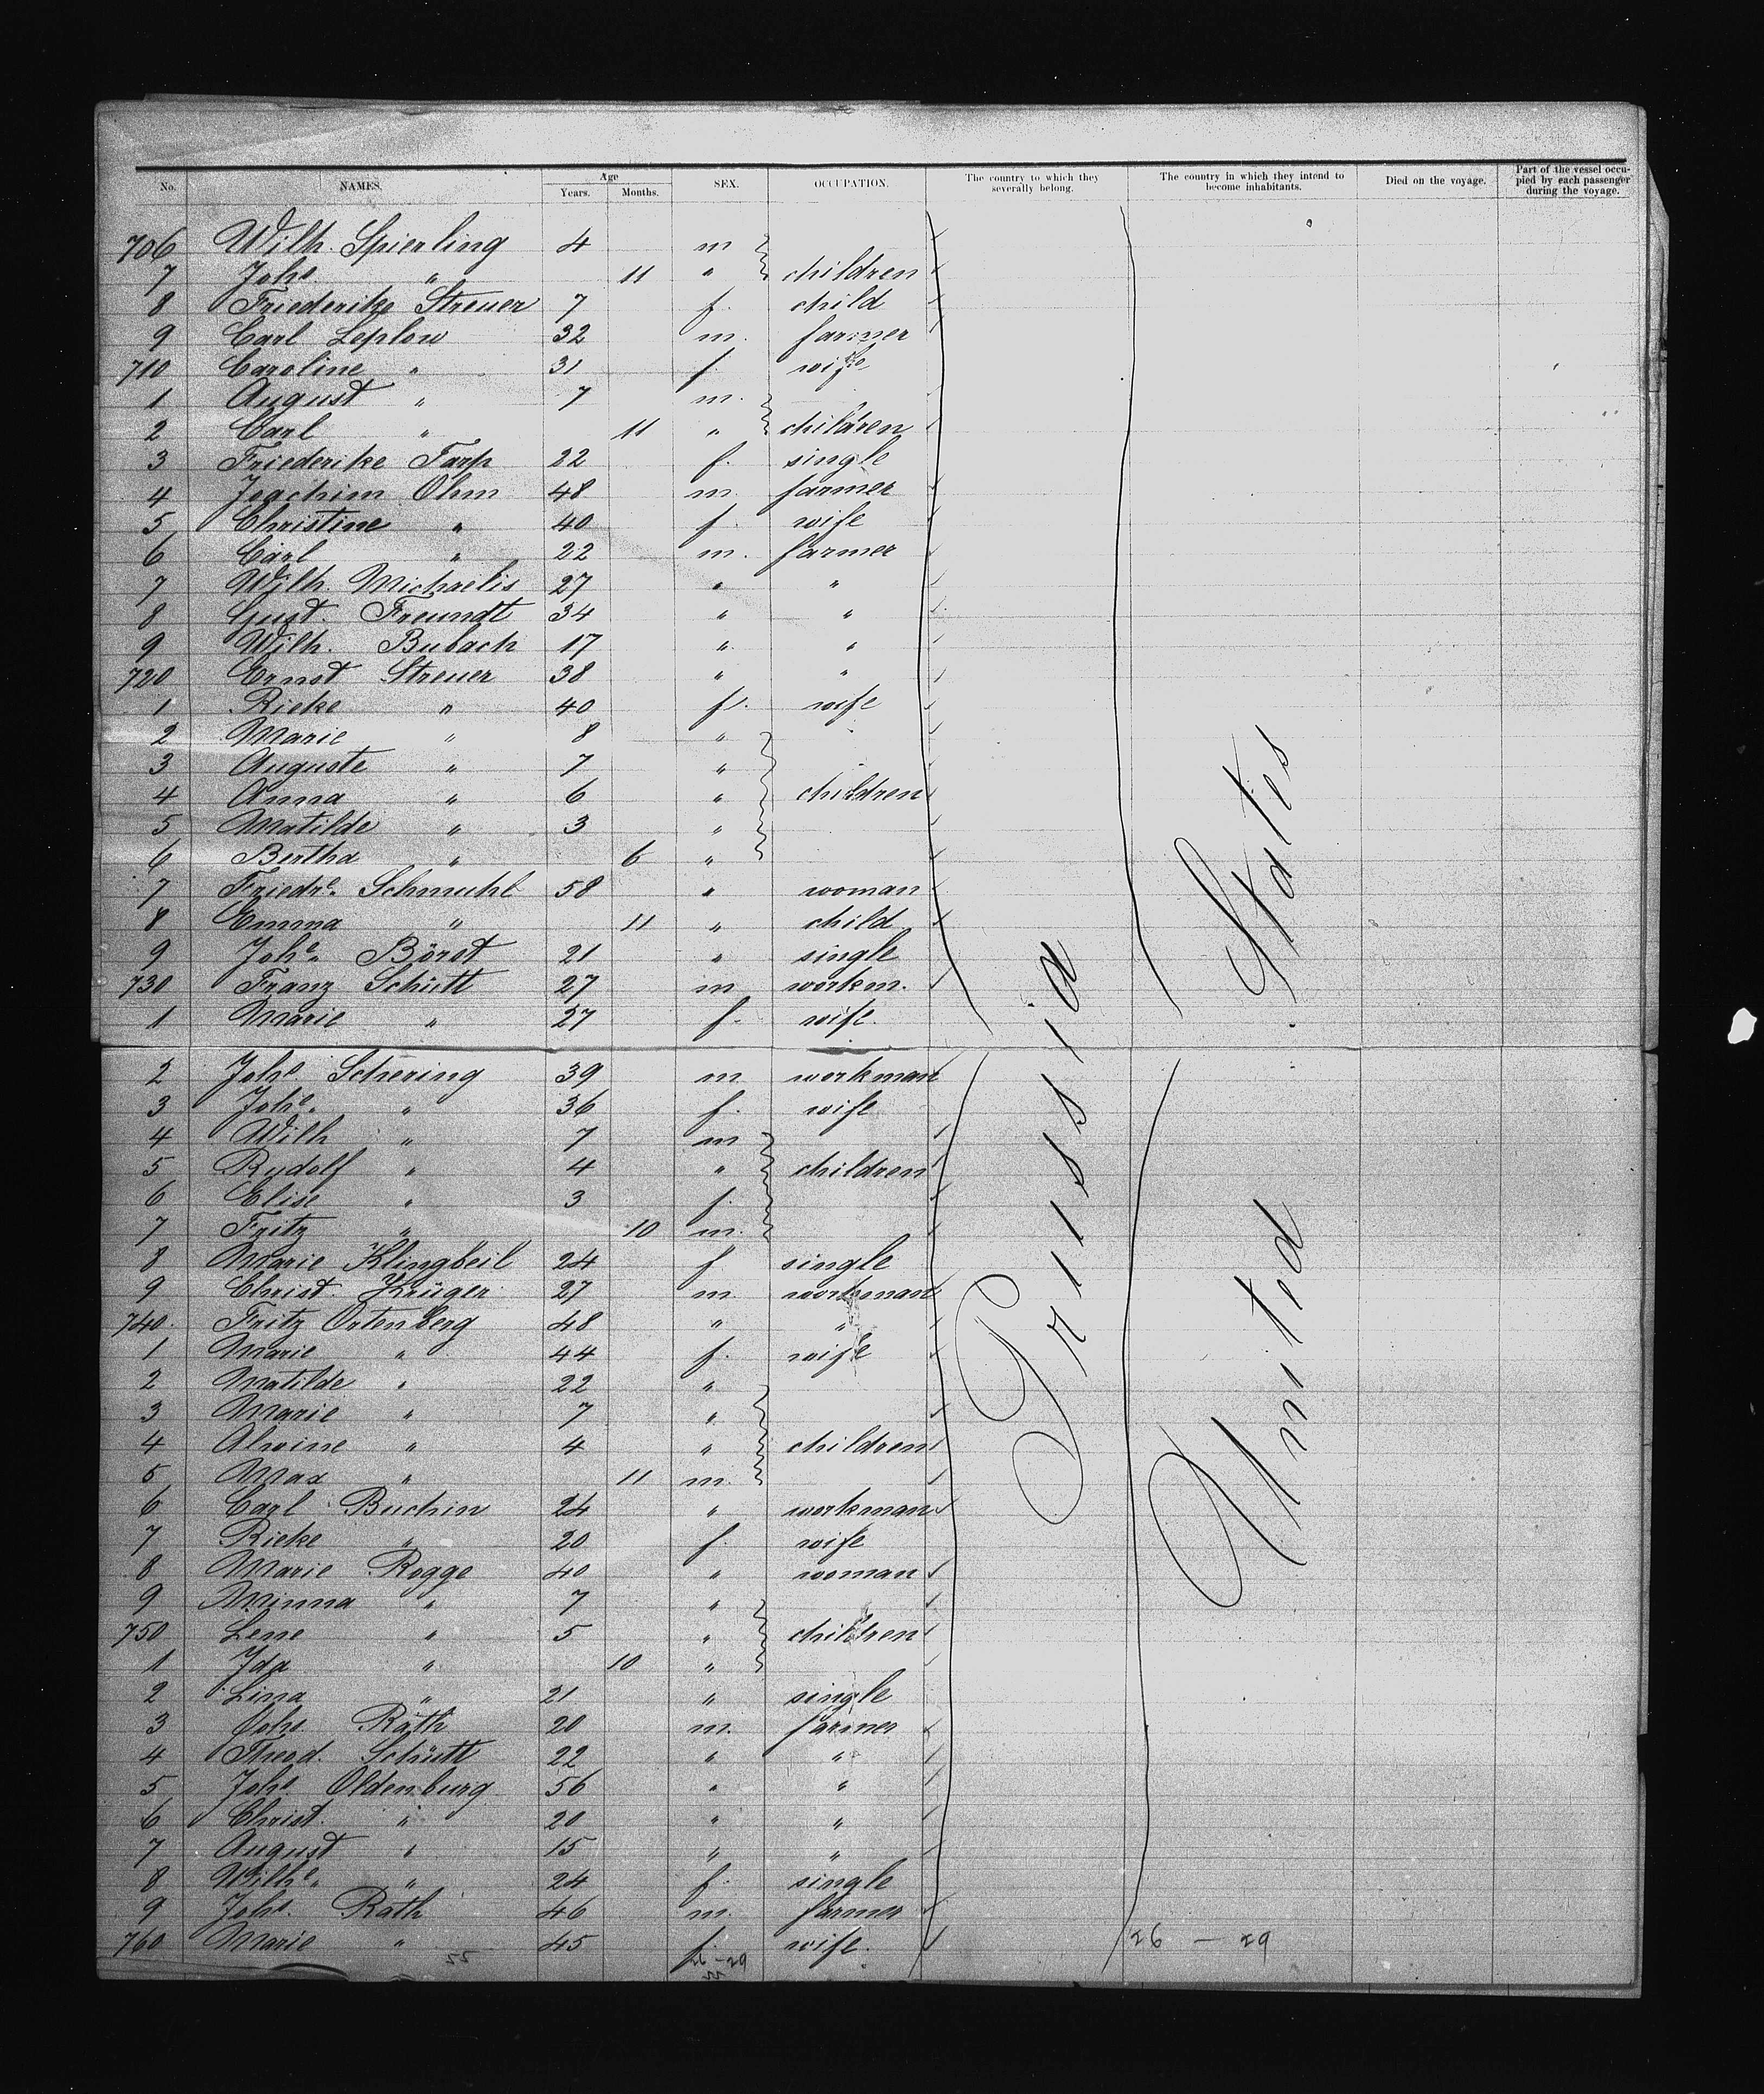 No. NAMES. Age Years. Months. SEX. OCCUPATION. The country to which they severally belong. The country in which they intend to become inhabitants. Died on the voyage. Part of the vessel occupied by each passenger during the voyage.
706 Wilh. Spierling 4 m
7 Johs " 11 " children
8 Friederike Streuer 7 f. child
9 Carl Leplow 32 m. farmer
710 Caroline " 31 f. wife
1 August " 7 m.
2 Carl " 11 " children
3 Friederike Tarp 22 f. single
4 Joachim Ohm 48 m. farmer
5 Christine " 40 f. wife
6 Carl " 22 m. farmer
7 Wilh. Michaelis 27 " "
8 Gust. Freundt 34 " "
9 Wilh. Bubach 17 " "
720 Ernst Streuer 38 " "
1 Rieke " 40 f. wife
2 Marie " 8 "
3 Auguste " 7 "
4 Anna " 6 " children
5 Matilde " 3 "
6 Bertha " 6 "
7 Friedre. Schmuhl 58 " woman
8 Emma " 11 " child
9 Johe. Börst 21 " single
730 Franz Schütt 27 m workm.
1 Marie " 27 f. wife.
2 Johs Schering 39 m workman
3 Johe. " 36 f. wife
4 Wilh " 7 m
5 Rudolf " 4 " children
6 Elise " 3 f.
7 Fritz " 10 m.
8 Marie Klingbeil 24 f single
9 Christ. Krüger 27 m workman
740. Fritz Ortenberg 48 " "
1 Marie " 44 f. wife
2 Matilde " 22 "
3 Marie " 7 "
4 Alwine " 4 " children
5 Max " 11 m.
6 Carl Buchin 24 " workman
7 Rieke " 20 f. wife
8 Marie Rogge 40 " woman
9 Minna " 7 "
750 Lene " 5 " children
1 Ida " 10 "
2 Lina " 21 " single
3 Johs Räth 20 m. farmer
4 Theod. Schütt 22 " "
5 Johs Oldenburg 56 " "
6 Christ. " 20 " "
7 August " 15 " "
8 Wilhe. " 24 f. single
9 Johs. Räth 46 m. farmer
760 Marie " 45 f. wife.
Prussia
United States
26 - 29